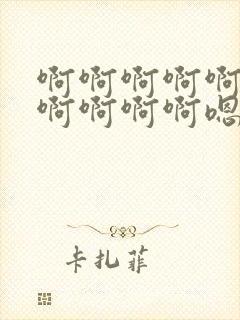 啊啊啊啊啊
啊啊啊啊嗯
卡扎菲